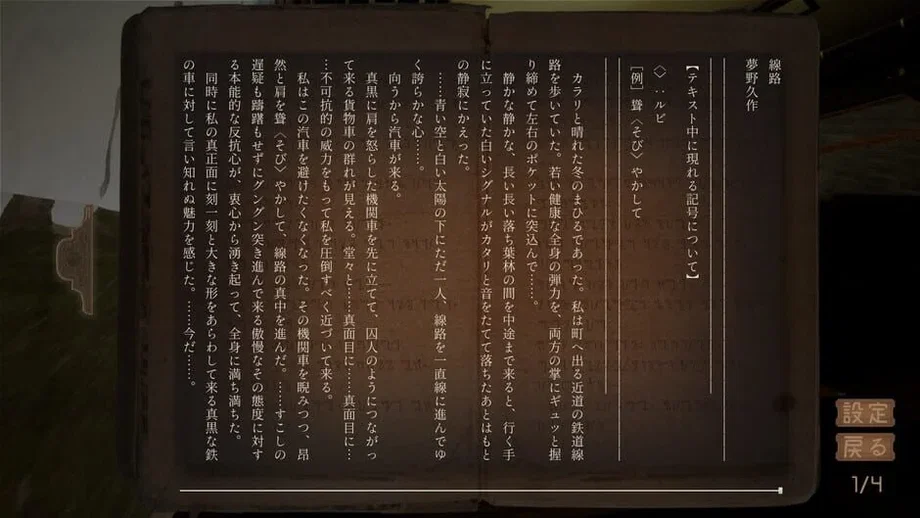 線路
夢野久作
【テキスト中に現れる記号について】
〈〉:ルビ
[例]聳〈そび〉やかして
カラリと晴れた冬のまひるであった。私は町へ出る近道の鉄道線
路を歩いていた。若い健康な全身の弾力を、両方の掌にギュッと握
り締めて左右のポケットに突込んで……。
静かな静かな、長い長い落ち葉林の間を中途まで来ると、行く手
に立っていた白いシグナルがカタリと音をたてて落ちたあとはもと
の静寂にかえった。
……青い空と白い太陽の下にただ一人、線路を一直線に進んでゆ
く誇らかな心……。
向うから汽車が来る。
真黒に肩を怒らした機関車を先に立てて、囚人のようにつながっ
て来る貨物車の群れが見える。堂々と……真面目に……真面目に…
…不可抗的の威力をもって私を圧倒すべく近づいて来る。
私はこの汽車を避けたくなくなった。その機関車を睨みつつ、昂
然と肩を聳〈そび〉やかして、線路の真中を進んだ。……すこしの
遅疑も躊躇もせずにグングン突き進んで来る傲慢なその態度に対す
る本能的な反抗心が、衷心から湧き起って、全身に満ち満ちた。
同時に私の真正面に刻一刻と大きな形をあらわして来る真黒な鉄
の車に対して言い知れぬ魅力を感じた。……今だ……。
設定
戻る
1/4